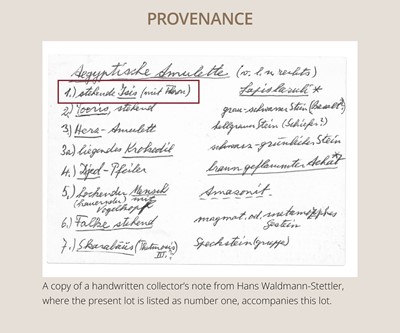 PROVENANCE
Aegyptische Amulette (v. l. n rechts)
1.) stehende Isis (mit Thron) Lapislazuli *
2.) Toeris, stehend grau-schwarzer Stein (Basalt?)
3.) Hera-Amulett hellgrau Stein (Schiefer?)
3a) liegendes Krokodil schwarz-grünlicher Stein
4.) Djed-Pfeiler braun geflammter Achat
5.) hockender Mensch Amazonit.
(trauernder) mit
Vogelkopf
6.) Falke stehend magmat. od. metamorphes
Gestein
7.) Skarabäus (Thutmosis) Speckstein (gruppe)
III.
A copy of a handwritten collector's note from Hans Waldmann-Stettler,
where the present lot is listed as number one, accompanies this lot.